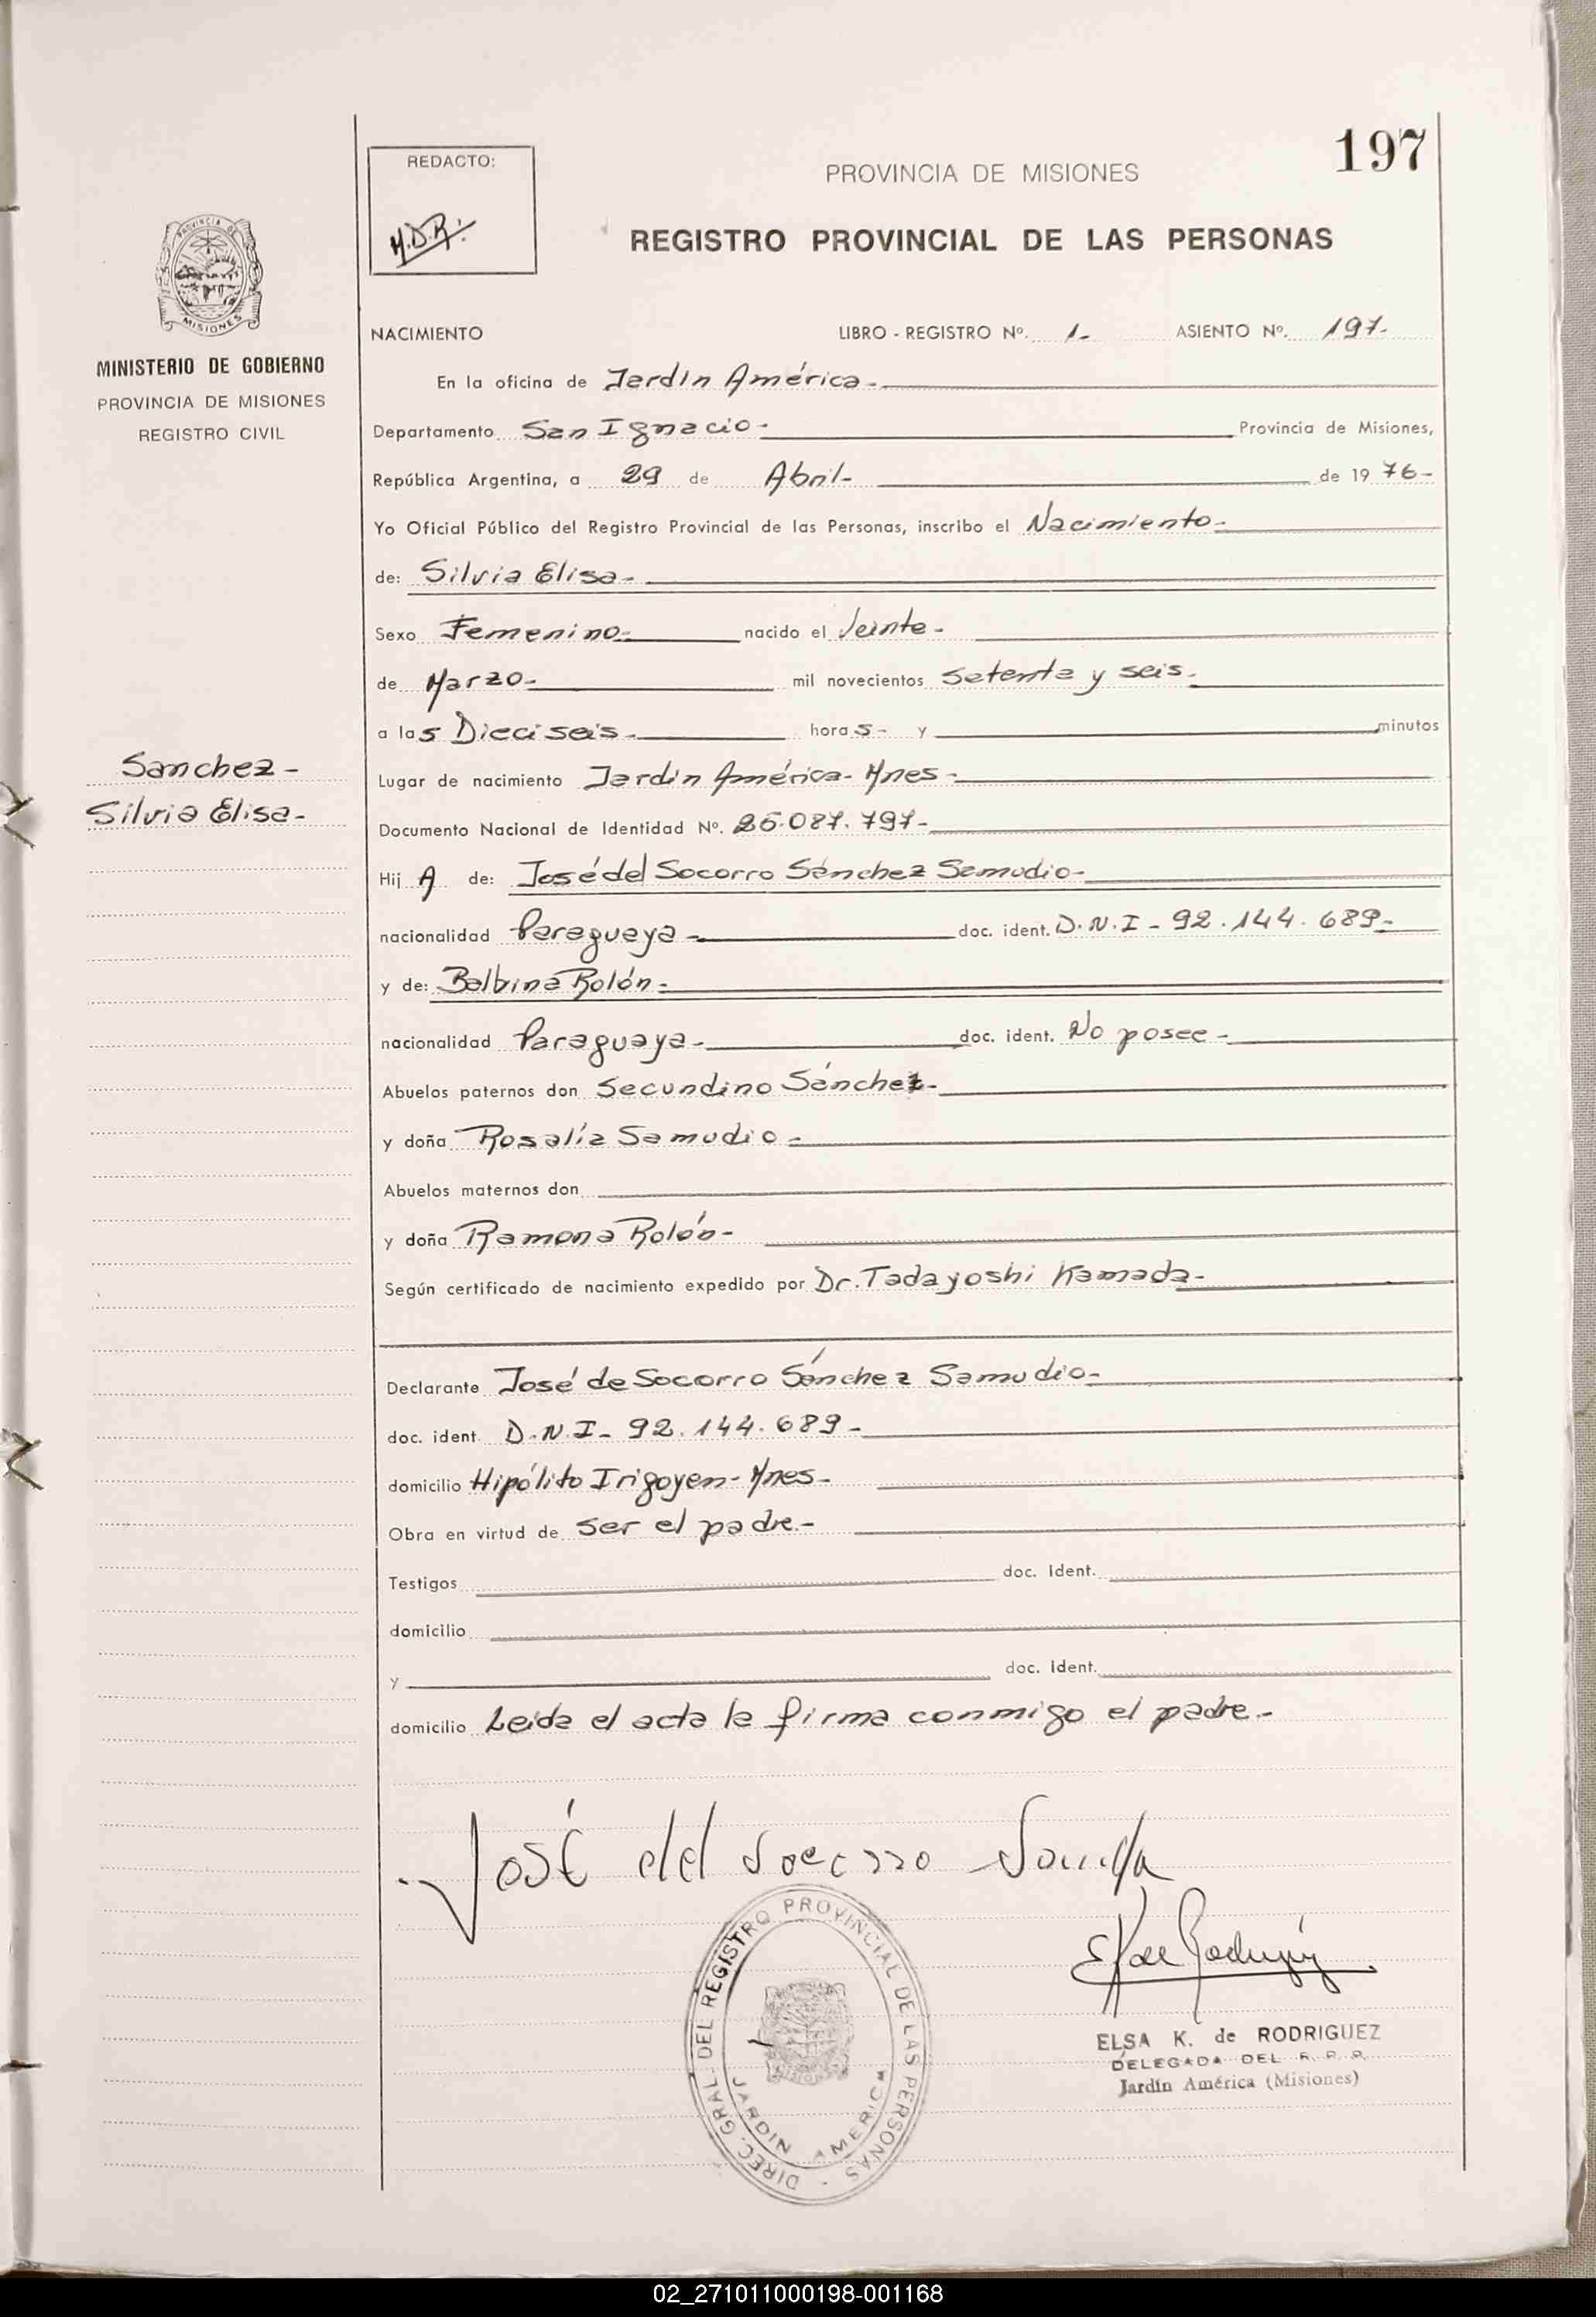 197
REDACTO:
M.D.R.
PROVINCIA DE MISIONES
REGISTRO PROVINCIAL DE LAS PERSONAS
PROVINCIA DE
MISIONES
MINISTERIO DE GOBIERNO
PROVINCIA DE MISIONES
REGISTRO CIVIL
Sanchez-
Silvia Elisa-
NACIMIENTO LIBRO - REGISTRO Nº. 1- ASIENTO Nº. 197-
En la oficina de Jardín América-
Departamento San Ignacio- Provincia de Misiones,
República Argentina, a 29 de Abril- de 19 76-
Yo Oficial Público del Registro Provincial de las Personas, inscribo el Nacimiento-
de: Silvia Elisa-
Sexo Femenino- nacido el Veinte-
de Marzo- mil novecientos setenta y seis-
a las Dieciseis- horas- y minutos
Lugar de nacimiento Jardín América- Mnes-
Documento Nacional de Identidad Nº. 25.087.797-
Hij A de: José del Socorro Sánchez Samudio-
nacionalidad Paraguaya- doc. ident. D.N.I- 92.144.689-
y de: Balbina Rolón-
nacionalidad Paraguaya- doc. ident. No posee-
Abuelos paternos don Secundino Sánchez-
y doña Rosalía Samudio-
Abuelos maternos don
y doña Ramona Rolón-
Según certificado de nacimiento expedido por Dr. Tadayoshi Kamada-
Declarante José de Socorro Sánchez Samudio-
doc. ident. D.N.I- 92.144.689-
domicilio Hipólito Irigoyen- Mnes-
Obra en virtud de ser el padre.-
Testigos doc. ident.
domicilio
y doc. ident.
domicilio Leida el acta la firma conmigo el padre.-
José del Socorro
DIREC. GRAL. DEL REGISTRO PROVINCIAL DE LAS PERSONAS -
JARDIN AMERICA
ELSA K. de RODRIGUEZ
DELEGADA DEL R. P. P.
Jardín América (Misiones)
02_271011000198-001168